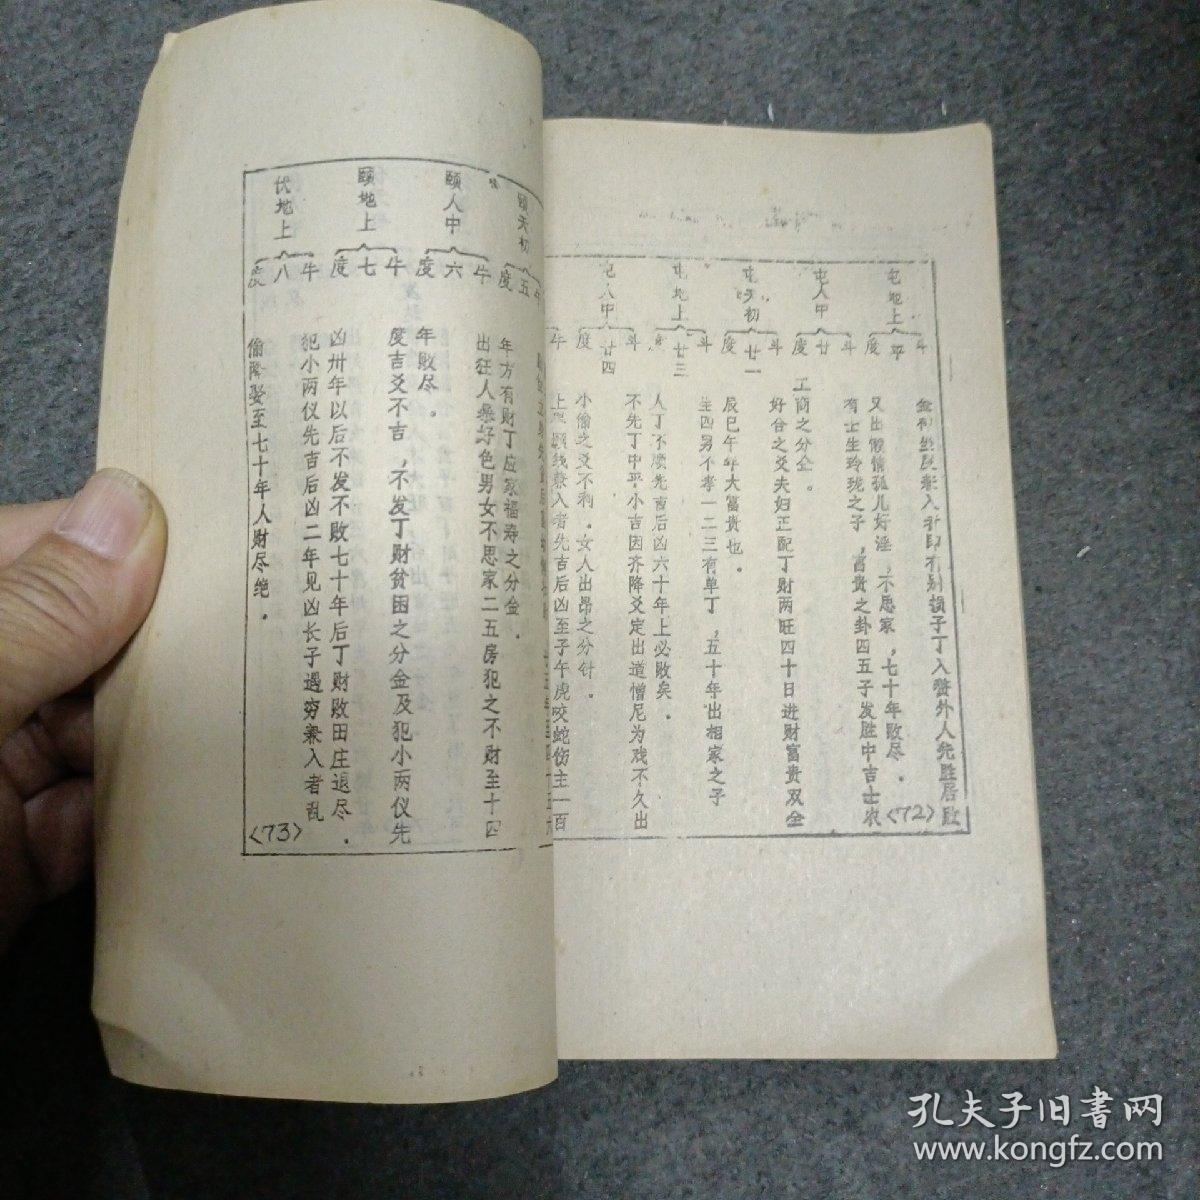 屯地上
斗
平
度
又出懒惰孤儿好淫，不思家，七十年败尽．
有士生玲珑之子，富贵之卦四五子发胜中吉士农
〈72〉
屯人中
斗
廿
度
工商之分金．
好合之爻夫妇正配丁财两旺四十日进财富贵双全
屯天初
斗
廿一
度
辰巳午年大富贵也．
生四男不孝一二三有单丁，五十年出相家之子
屯地上
斗
廿三
度
人丁不顺先吉后凶六十年上必败矣．
不先丁中平小吉因齐降爻定出道憎尼为戏不久出
屯人中
斗
廿四
度
小偷之爻不利．女人出昂之分针．
颐线兼入者先吉后凶至子午虎咬蛇伤主一百
颐天初
牛
五
度
年方有财丁应家福寿之分金．
出狂人暴好色男女不思家二五房犯之不财至十四
颐人中
牛
六
度
年败尽．
度吉爻不吉，不发丁财贫困之分金及犯小两仪先
颐地上
牛
七
度
凶卅年以后不发不败七十年后丁财败田庄退尽．
犯小两仪先吉后凶二年见凶长子遇穷兼入者乱
伏地上
牛
八
度
偷降娶至七十年人财尽绝．
〈73〉
孔夫子旧書网
www.kongfz.com